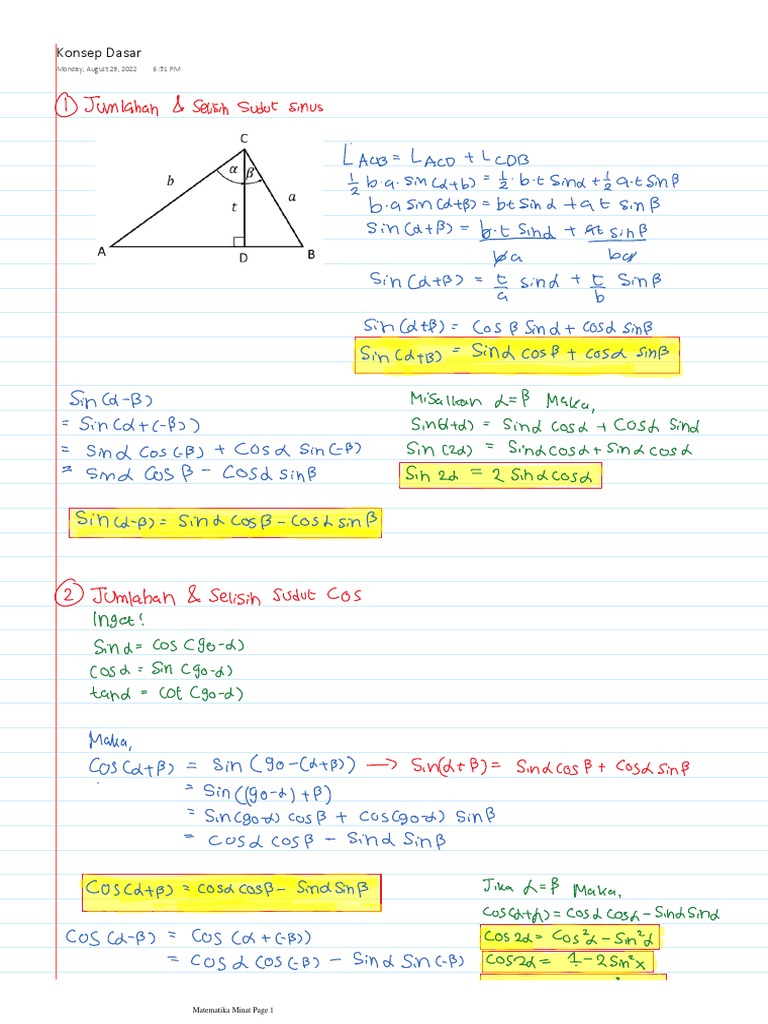 Konsep Dasar
Monday, August 29, 2022 6:51 PM
① Jumlahan & Selisih Sudut Sinus
C
α β
b
a
t
A
D
B
L ACB = L ACD + L CDB
1/2 b·a·sin(α+b) = 1/2·b·t Sinα + 1/2 a·t Sin β
b·a sin(α+β) = bt sin α + a t sin β
sin(α+β) = b·t Sinα/ba + at sin β/ba
Sin(α+β) = t/a sinα + t/b Sin β
Sin(α+β) = Cos β Sinα + Cosα sinβ
Sin(α+β) = Sinα cosβ + cosα sinβ
Sin(α-β)
= Sin(α+(-β))
= Sinα Cos(-β) + Cosα Sin(-β)
= Sinα Cos β - Cosα sinβ
Sin(α-β) = Sinα Cosβ - Cosα sin β
Misalkan α=β Maka,
Sin(α+α) = Sinα cosα + Cosα Sinα
Sin(2α) = Sinα cosα + Sinα cosα
Sin 2α = 2 Sinα cosα
② Jumlahan & Selisih Sudut Cos
Ingat!
Sin α = cos(90-α)
Cos α = Sin(90-α)
tanα = cot(90-α)
Maka,
Cos(α+β) = Sin(90-(α+β)) → Sin(α+β) = Sinα cosβ + Cosα sinβ
= Sin((90-α)+β)
= Sin(90-α) cosβ + Cos(90-α) Sinβ
= Cosα cosβ - Sinα Sinβ
Cos(α+β) = cosα cosβ - Sinα Sinβ
Cos(α-β) = Cos(α+(-β))
= Cos α Cos(-β) - Sinα Sin(-β)
Jika α=β Maka,
Cos(α+α) = Cosα Cosα - Sinα Sinα
Cos 2α = Cos²α - Sin²α
Cos 2α = 1 - 2 Sin²x
Matematika Minat Page 1